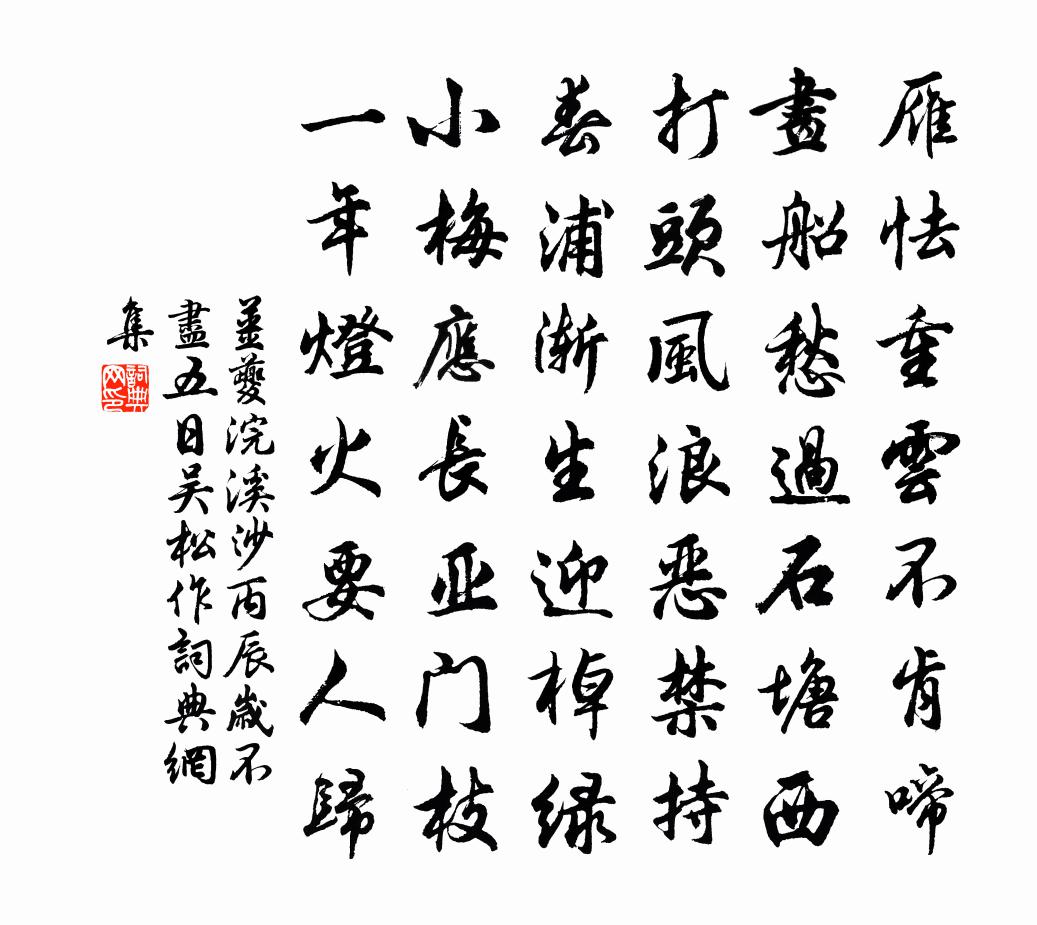 雁怯重雲不肯啼
畫船愁過石塘西
打頭風浪惡禁持
春浦漸生迎棹綠
小梅應長亚门枝
一年燈火要人歸
姜夔浣溪沙丙辰歲不
盡五日吴松作詞典網
集
詞典
网印